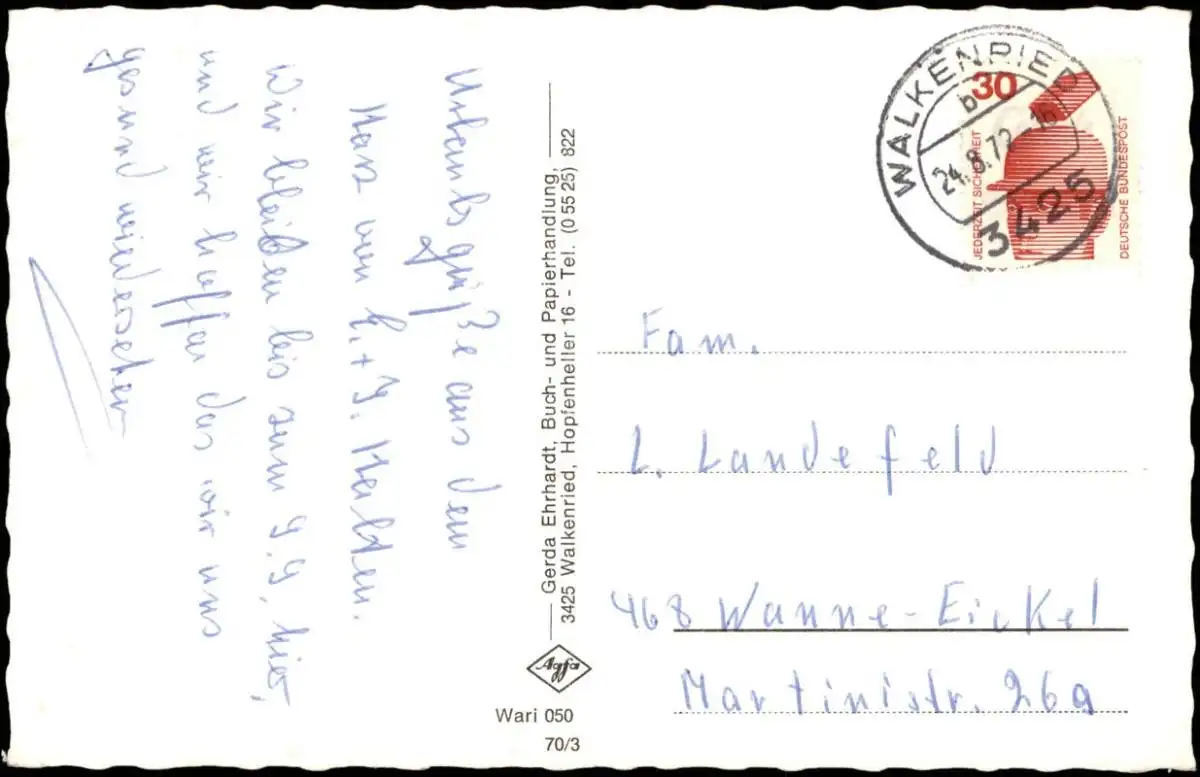 Urlaubsgrüße aus dem
Harz von
Wir bleiben bis zum 9.9. hier,
und wir hoffen das wir uns
gesund wiedersehen
Gerda Ehrhardt, Buch- und Papierhandlung,
3425 Walkenried, Hopfenheller 16 - Tel. (0 55 25) 822
Agfa
Wari 050
70/3
WALKENRIED
b
24.8.72-16
3425
30
JEDERZEIT SICHERHEIT
DEUTSCHE BUNDESPOST
Fam.
L. Landefeld
468 Wanne-Eickel
Martinistr. 26a